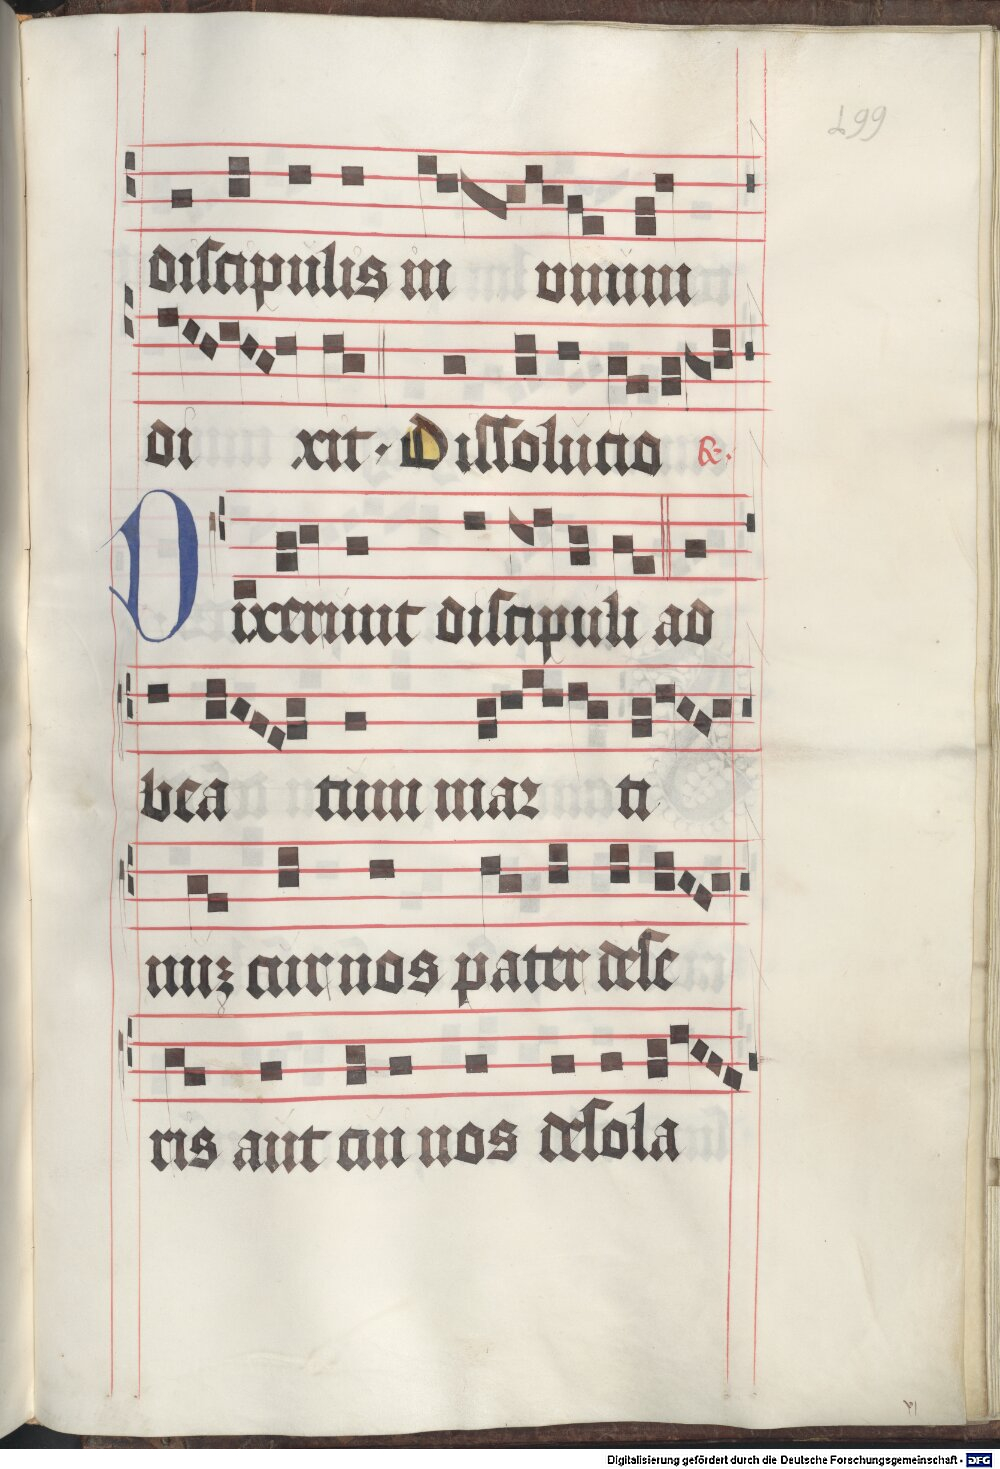 199
discipulis in unum
di xit. Dissolutio R.
Dixerunt discipuli ad
bea tum mar ti
nuz cur nos pater dese
ris aut cui nos desola
Digitalisierung gefördert durch die Deutsche Forschungsgemeinschaft - DFG